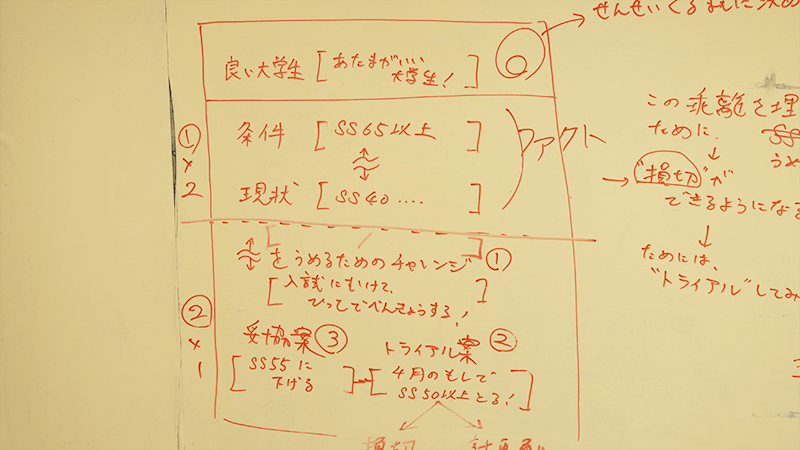 せんせいくるまえに決め
良い大学生 [あたまがいい
大学生!]
①
×
2
条件 [SS65以上]
現状 [SS40‥‥]
ファクト
この乖離を埋
ために、
↓
→ "損切"が
できるようになる
↓
ためには、
"トライアル"してみ
②
×
1
をうめるためのチャレンジ ①
[入試にむけて、
ひっしでべんきょうする!]
妥協案 ③
[SS55に
下げる]
トライアル案 ②
[4月のもしで
SS50以上とる!]
損切